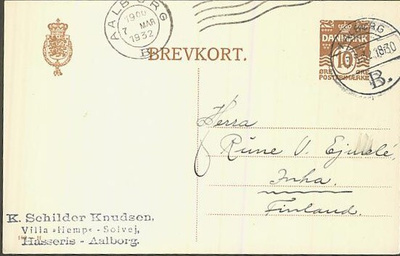 AALBORG
1900
7 MAR
1932
B.
BREVKORT.
DANMARK
10
ØRE ØRE
POSTFÆRGE
B.
Herra
Rune V.
Inha.
Finland.
K. Schilder Knudsen.
Villa »Hemp« - Solvej,
Hasseris - Aalborg.